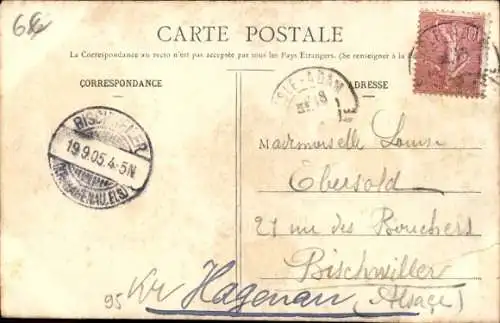 66
CARTE POSTALE
La Correspondance au recto n'est pas acceptée par tous les Pays Etrangers. (Se renseigner à la
CORRESPONDANCE
ADRESSE
ISLE-ADAM
18
BISCHWEILER
19.9.05.4-5N
(KR. HAGENAU, ELS.)
Mademoiselle Louise
Ebersold
27 rue des Bouchers
Bischwiller
95 Kr Hagenau (Alsace)